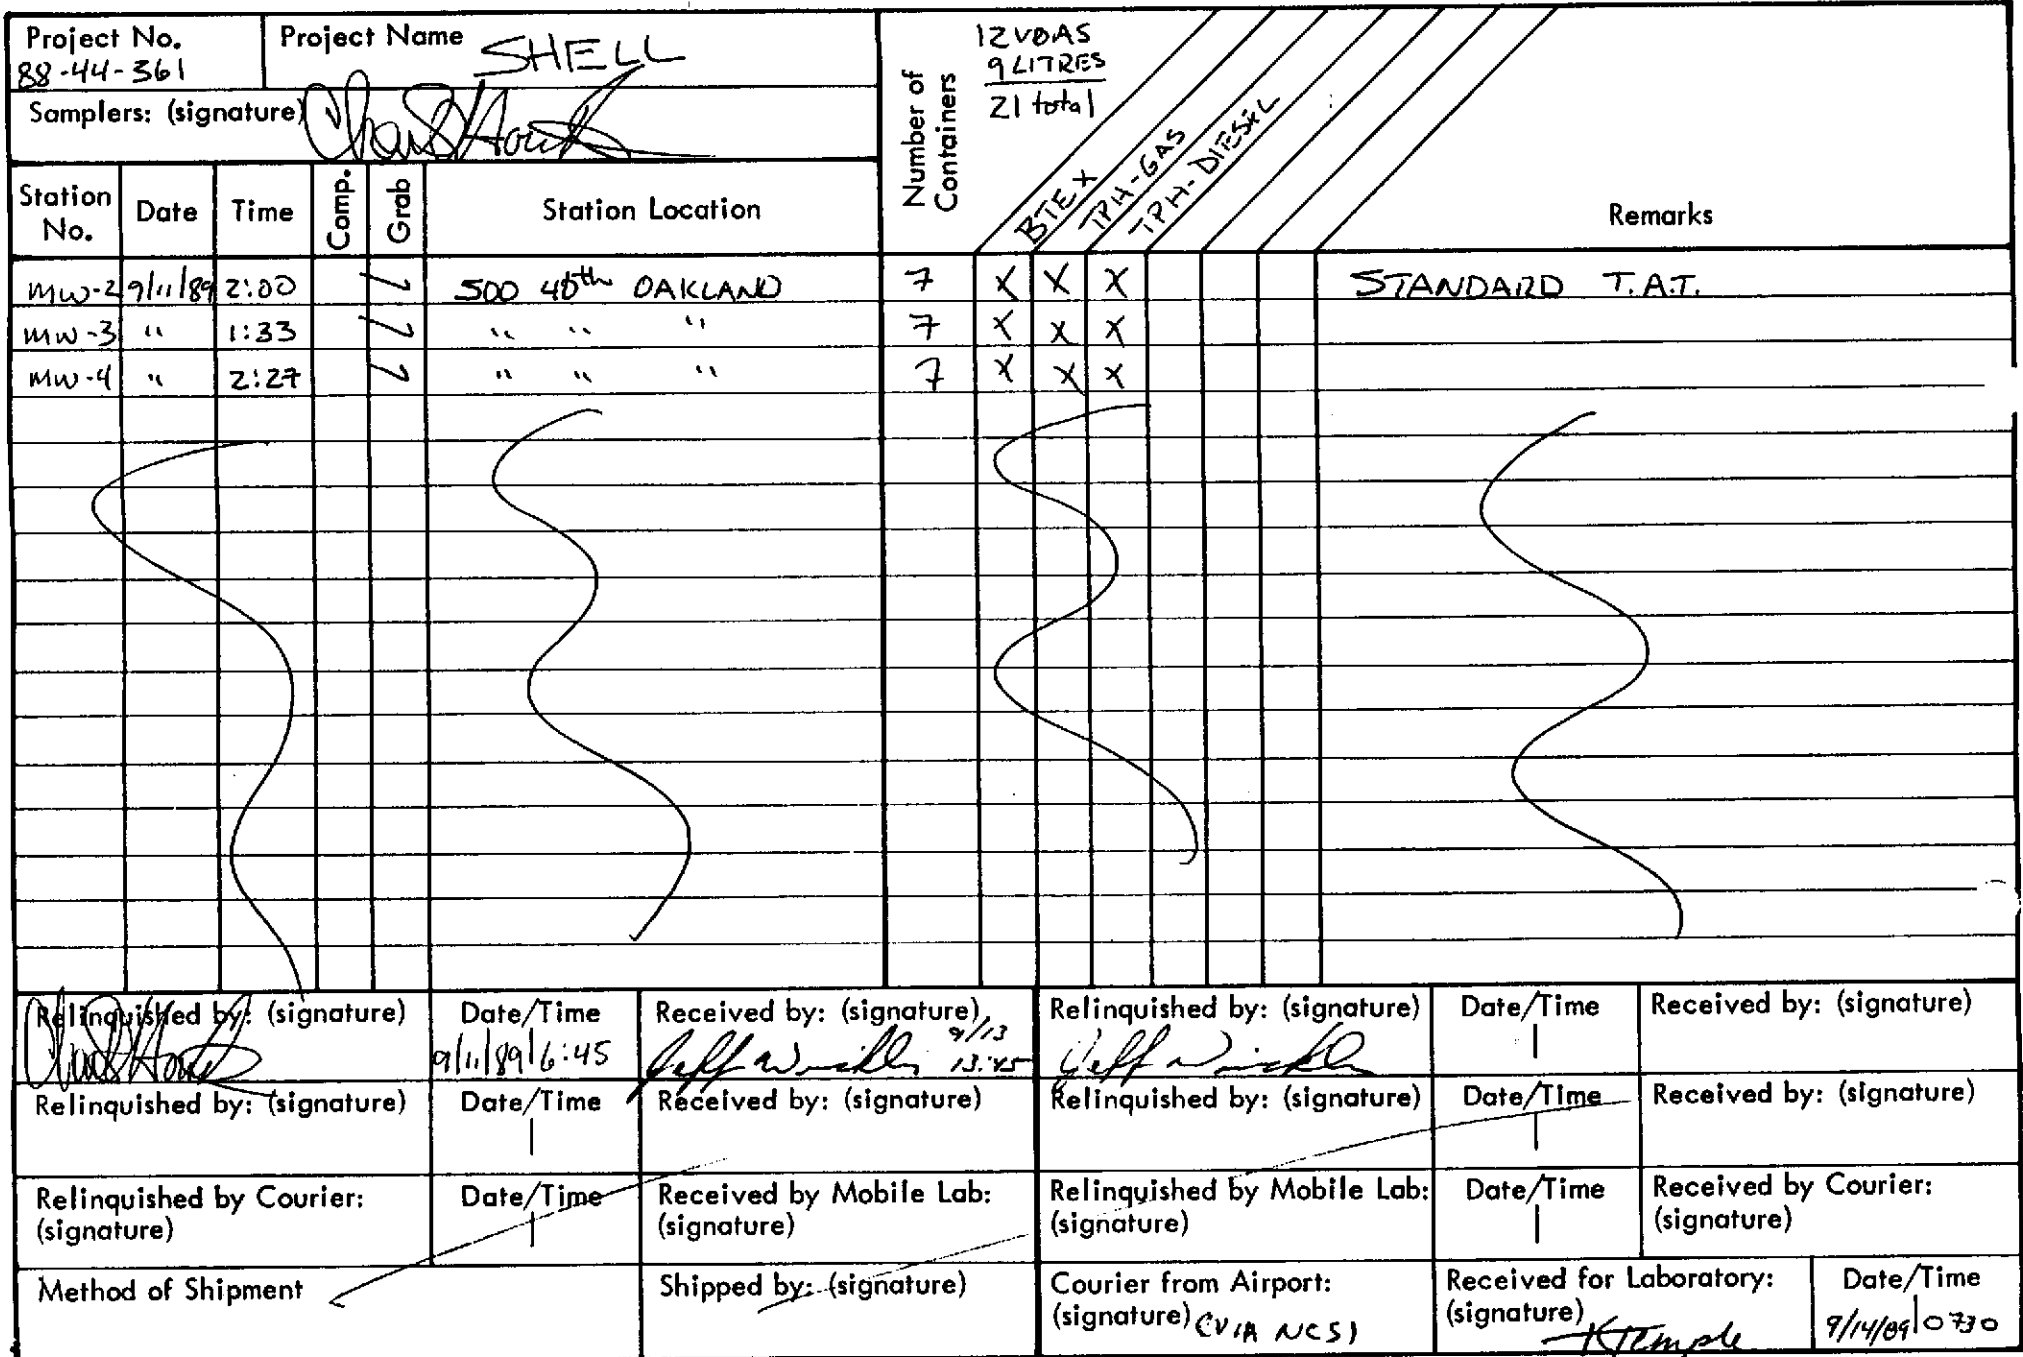 Project No.
88-44-361
Project Name SHELL
Samplers: (signature)
Number of Containers
12 VOAS
9 LITRES
21 total
BTEX
TPH-GAS
TPH-DIESEL
Station No. Date Time Comp. Grab Station Location Remarks
MW-2 9/11/89 2:00 500 40th OAKLAND 7 X X X STANDARD T.A.T.
MW-3 " 1:33 " " " 7 X X X
MW-4 " 2:27 " " " 7 X X X
Relinquished by: (signature) Date/Time Received by: (signature) Relinquished by: (signature) Date/Time Received by: (signature)
9/11/89 | 6:45 Jeff 9/13 13:45 Jeff
Relinquished by: (signature) Date/Time Received by: (signature) Relinquished by: (signature) Date/Time Received by: (signature)
Relinquished by Courier: (signature) Date/Time Received by Mobile Lab: (signature) Relinquished by Mobile Lab: (signature) Date/Time Received by Courier: (signature)
Method of Shipment Shipped by: (signature) Courier from Airport: (signature) (VIA NCS) Received for Laboratory: (signature) KTemple Date/Time
9/14/89 | 0730